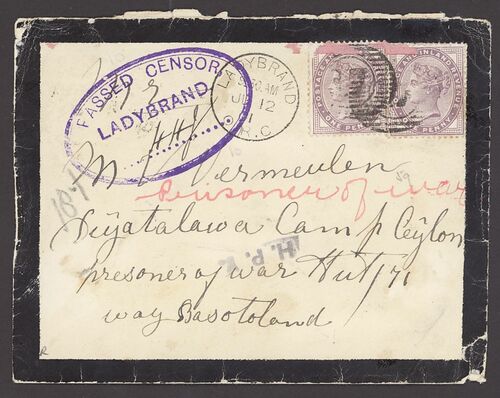 PASSED CENSOR
LADYBRAND.
LADYBRAND
JU 12
1
R.C
POSTAGE AND INLAND REVENUE
ONE PENNY
M Vermeulen
Prisoner of war
Diyatalawa Camp Ceylon
presoner of war Hut 171
way Basotoland
H.P.
R